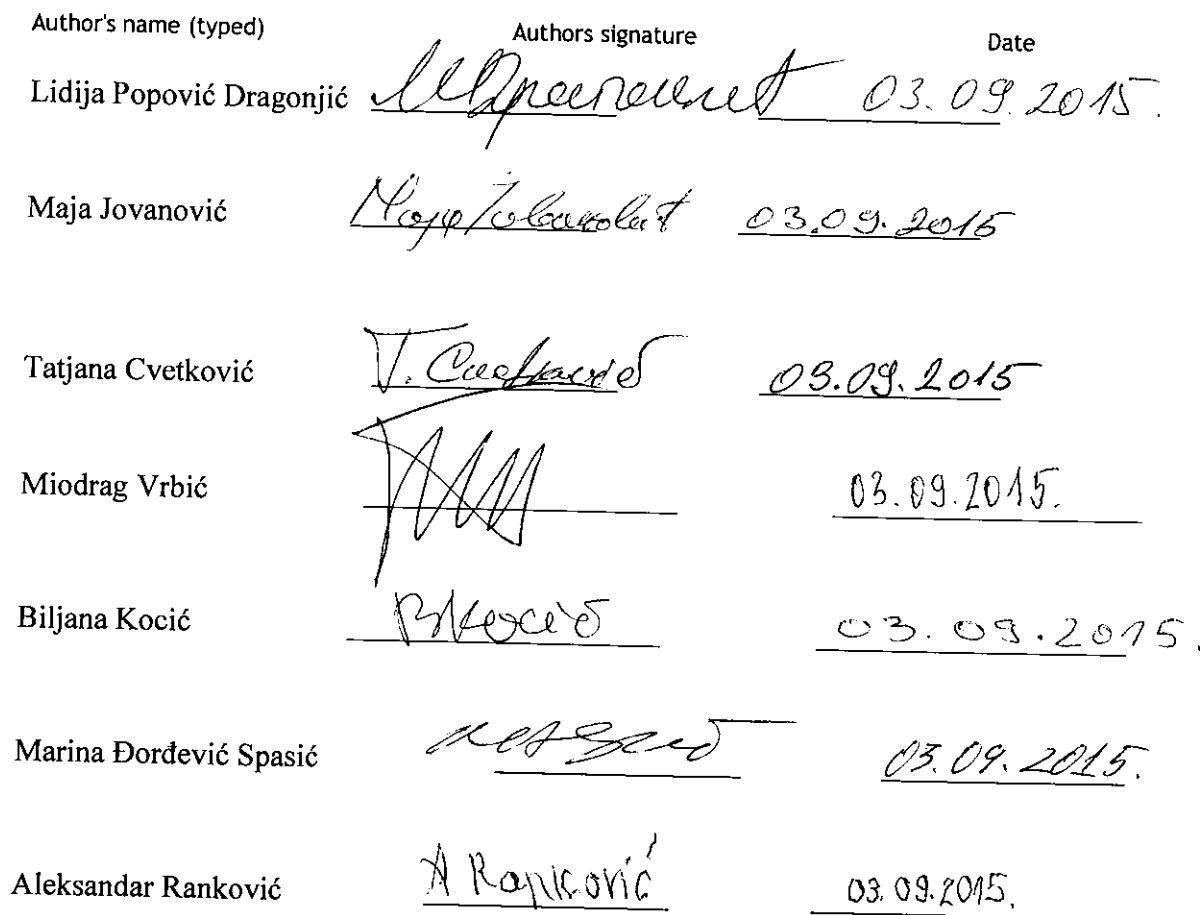 Author's name (typed) Authors signature Date
Lidija Popović Dragonjić 03.09.2015.
Maja Jovanović 03.09.2015
Tatjana Cvetković T. 03.09.2015
Miodrag Vrbić 03.09.2015.
Biljana Kocić BKocić 03.09.2015.
Marina Đorđević Spasić 03.09.2015.
Aleksandar Ranković A Ranković 03.09.2015.